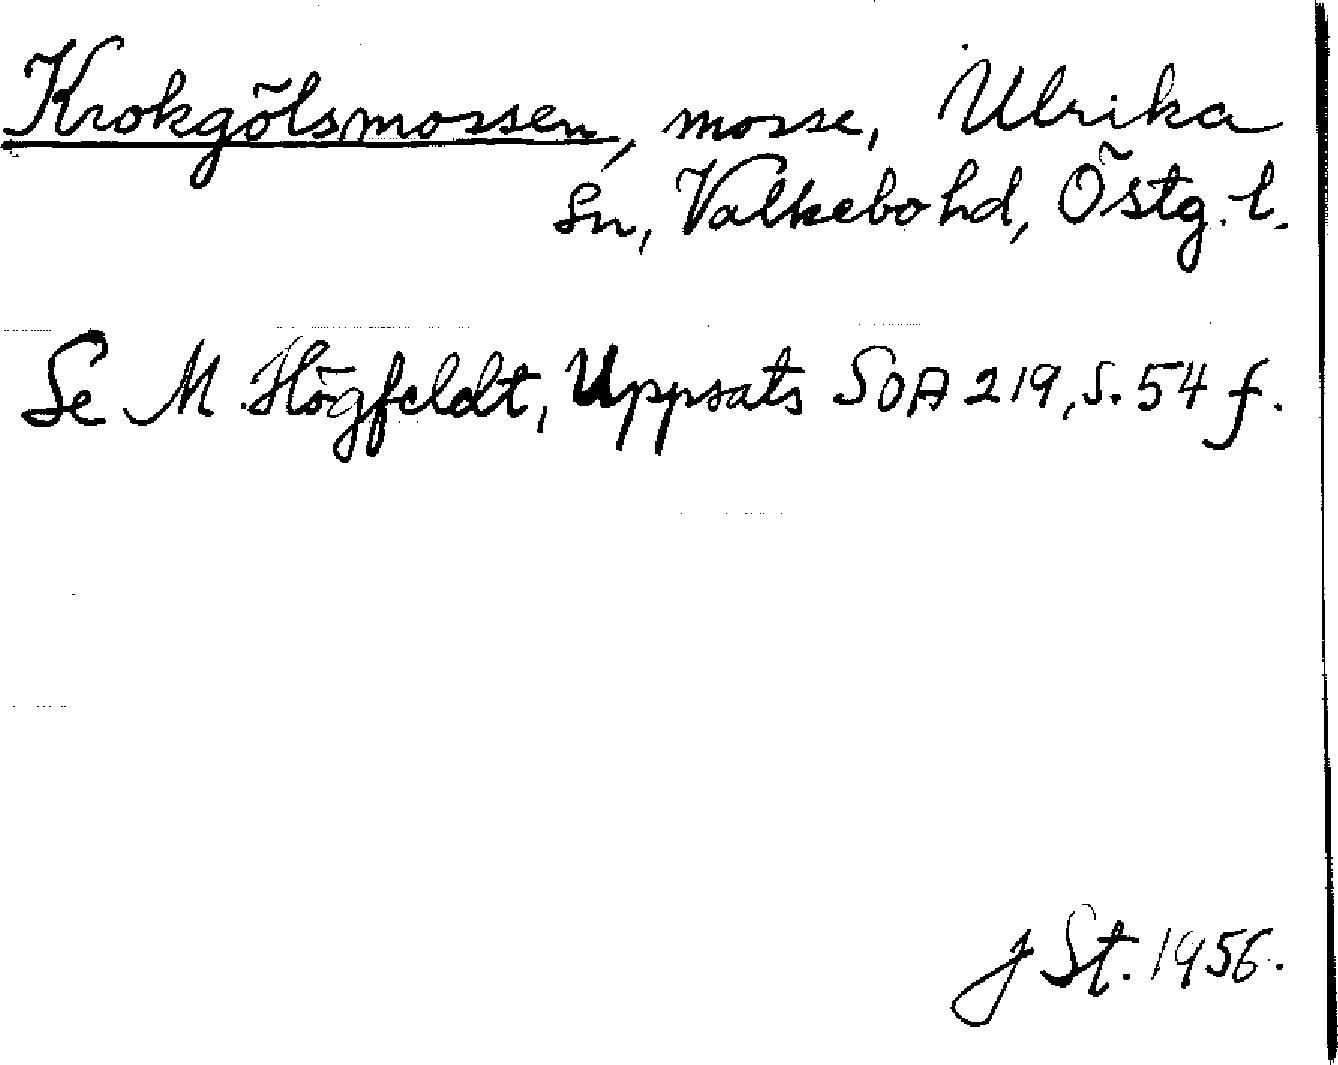 Krokgölsmossen, mosse, Ulrika
sn, Valkebo hd, Östg. l.
Se M. Högfeldt, Uppsats SOA 219, s. 54 f.
J St. 1956.